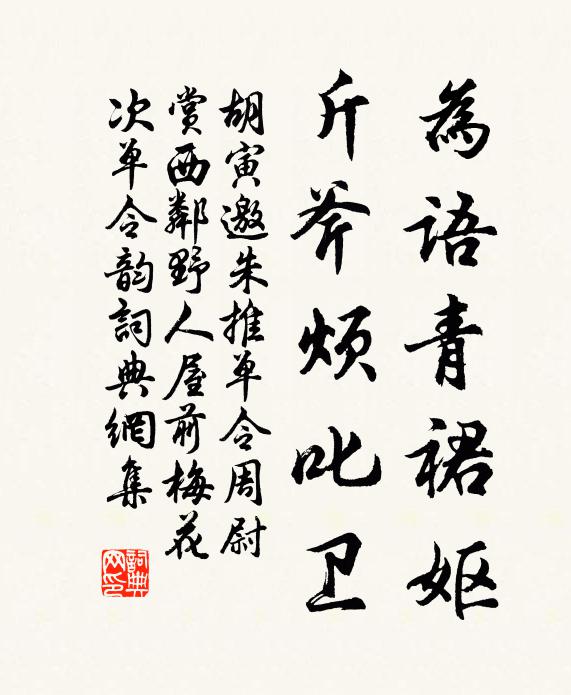 為語青裙妪
斤斧烦叱卫
胡寅邀朱推单令周尉
赏西鄰野人屋前梅花
次单令韵詞典網集
詞典網印